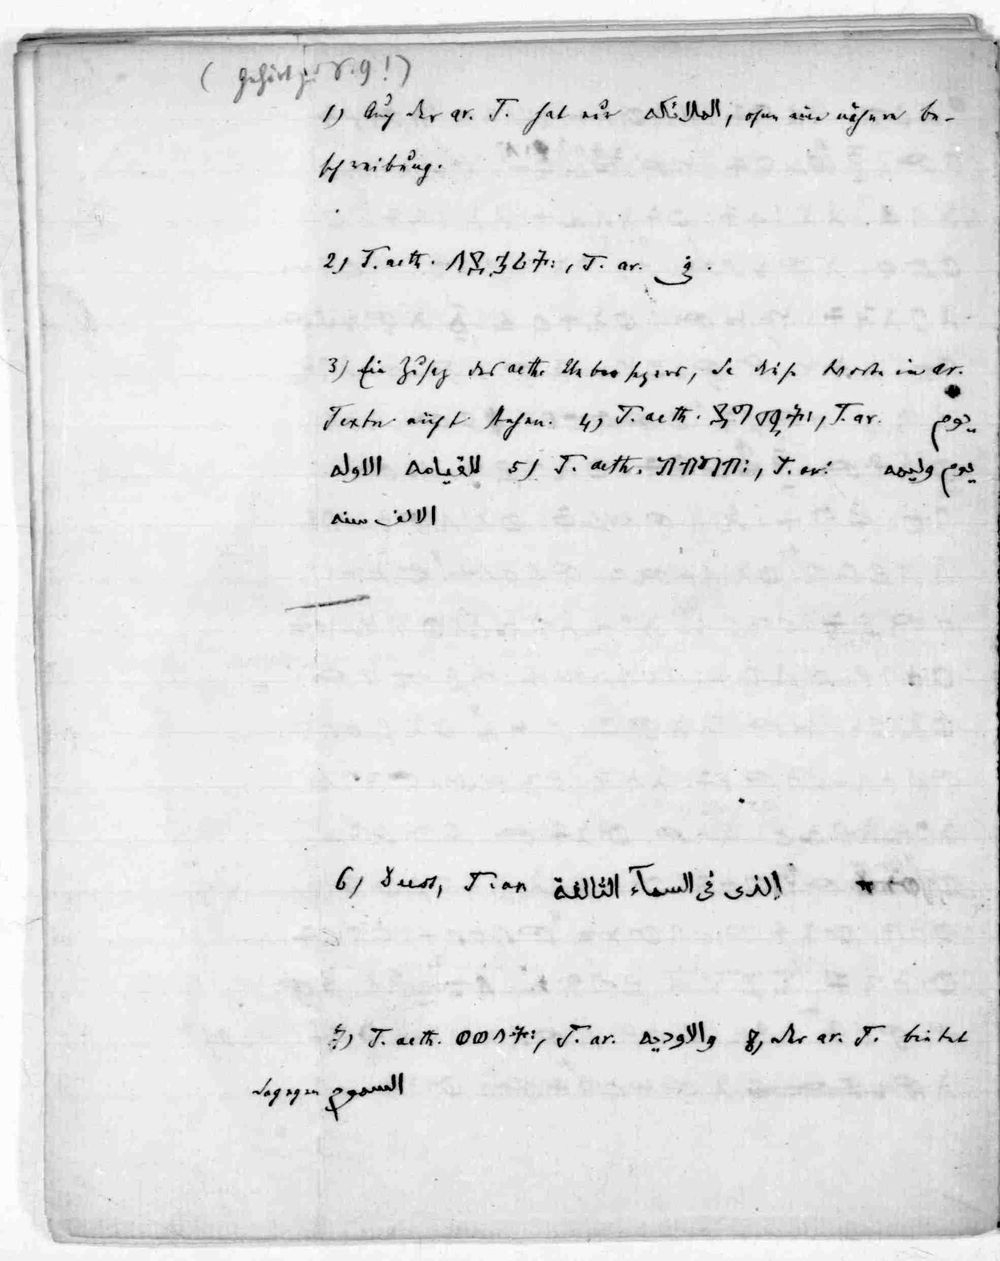 ( gehört zu V. 9!)
1) Auch der ar. T. hat nur الملائكه, ohne eine nähere be-
schreibung.
2) T. aeth. , T. ar. في .
3) Ein Zusatz des aeth. Uebersetzers, da diese Worte im ar.
Texte nicht stehen. 4) T. aeth. , T. ar. يوم
للقيامه الاوله 5) T. aeth. , T. ar: يوم وليمه
الالف سنه
6) T. ar. الذى فى السمآء الثالثة
7) T. aeth. , T. ar. والاوديه 8) der ar. T. bietet
dagegen السموم